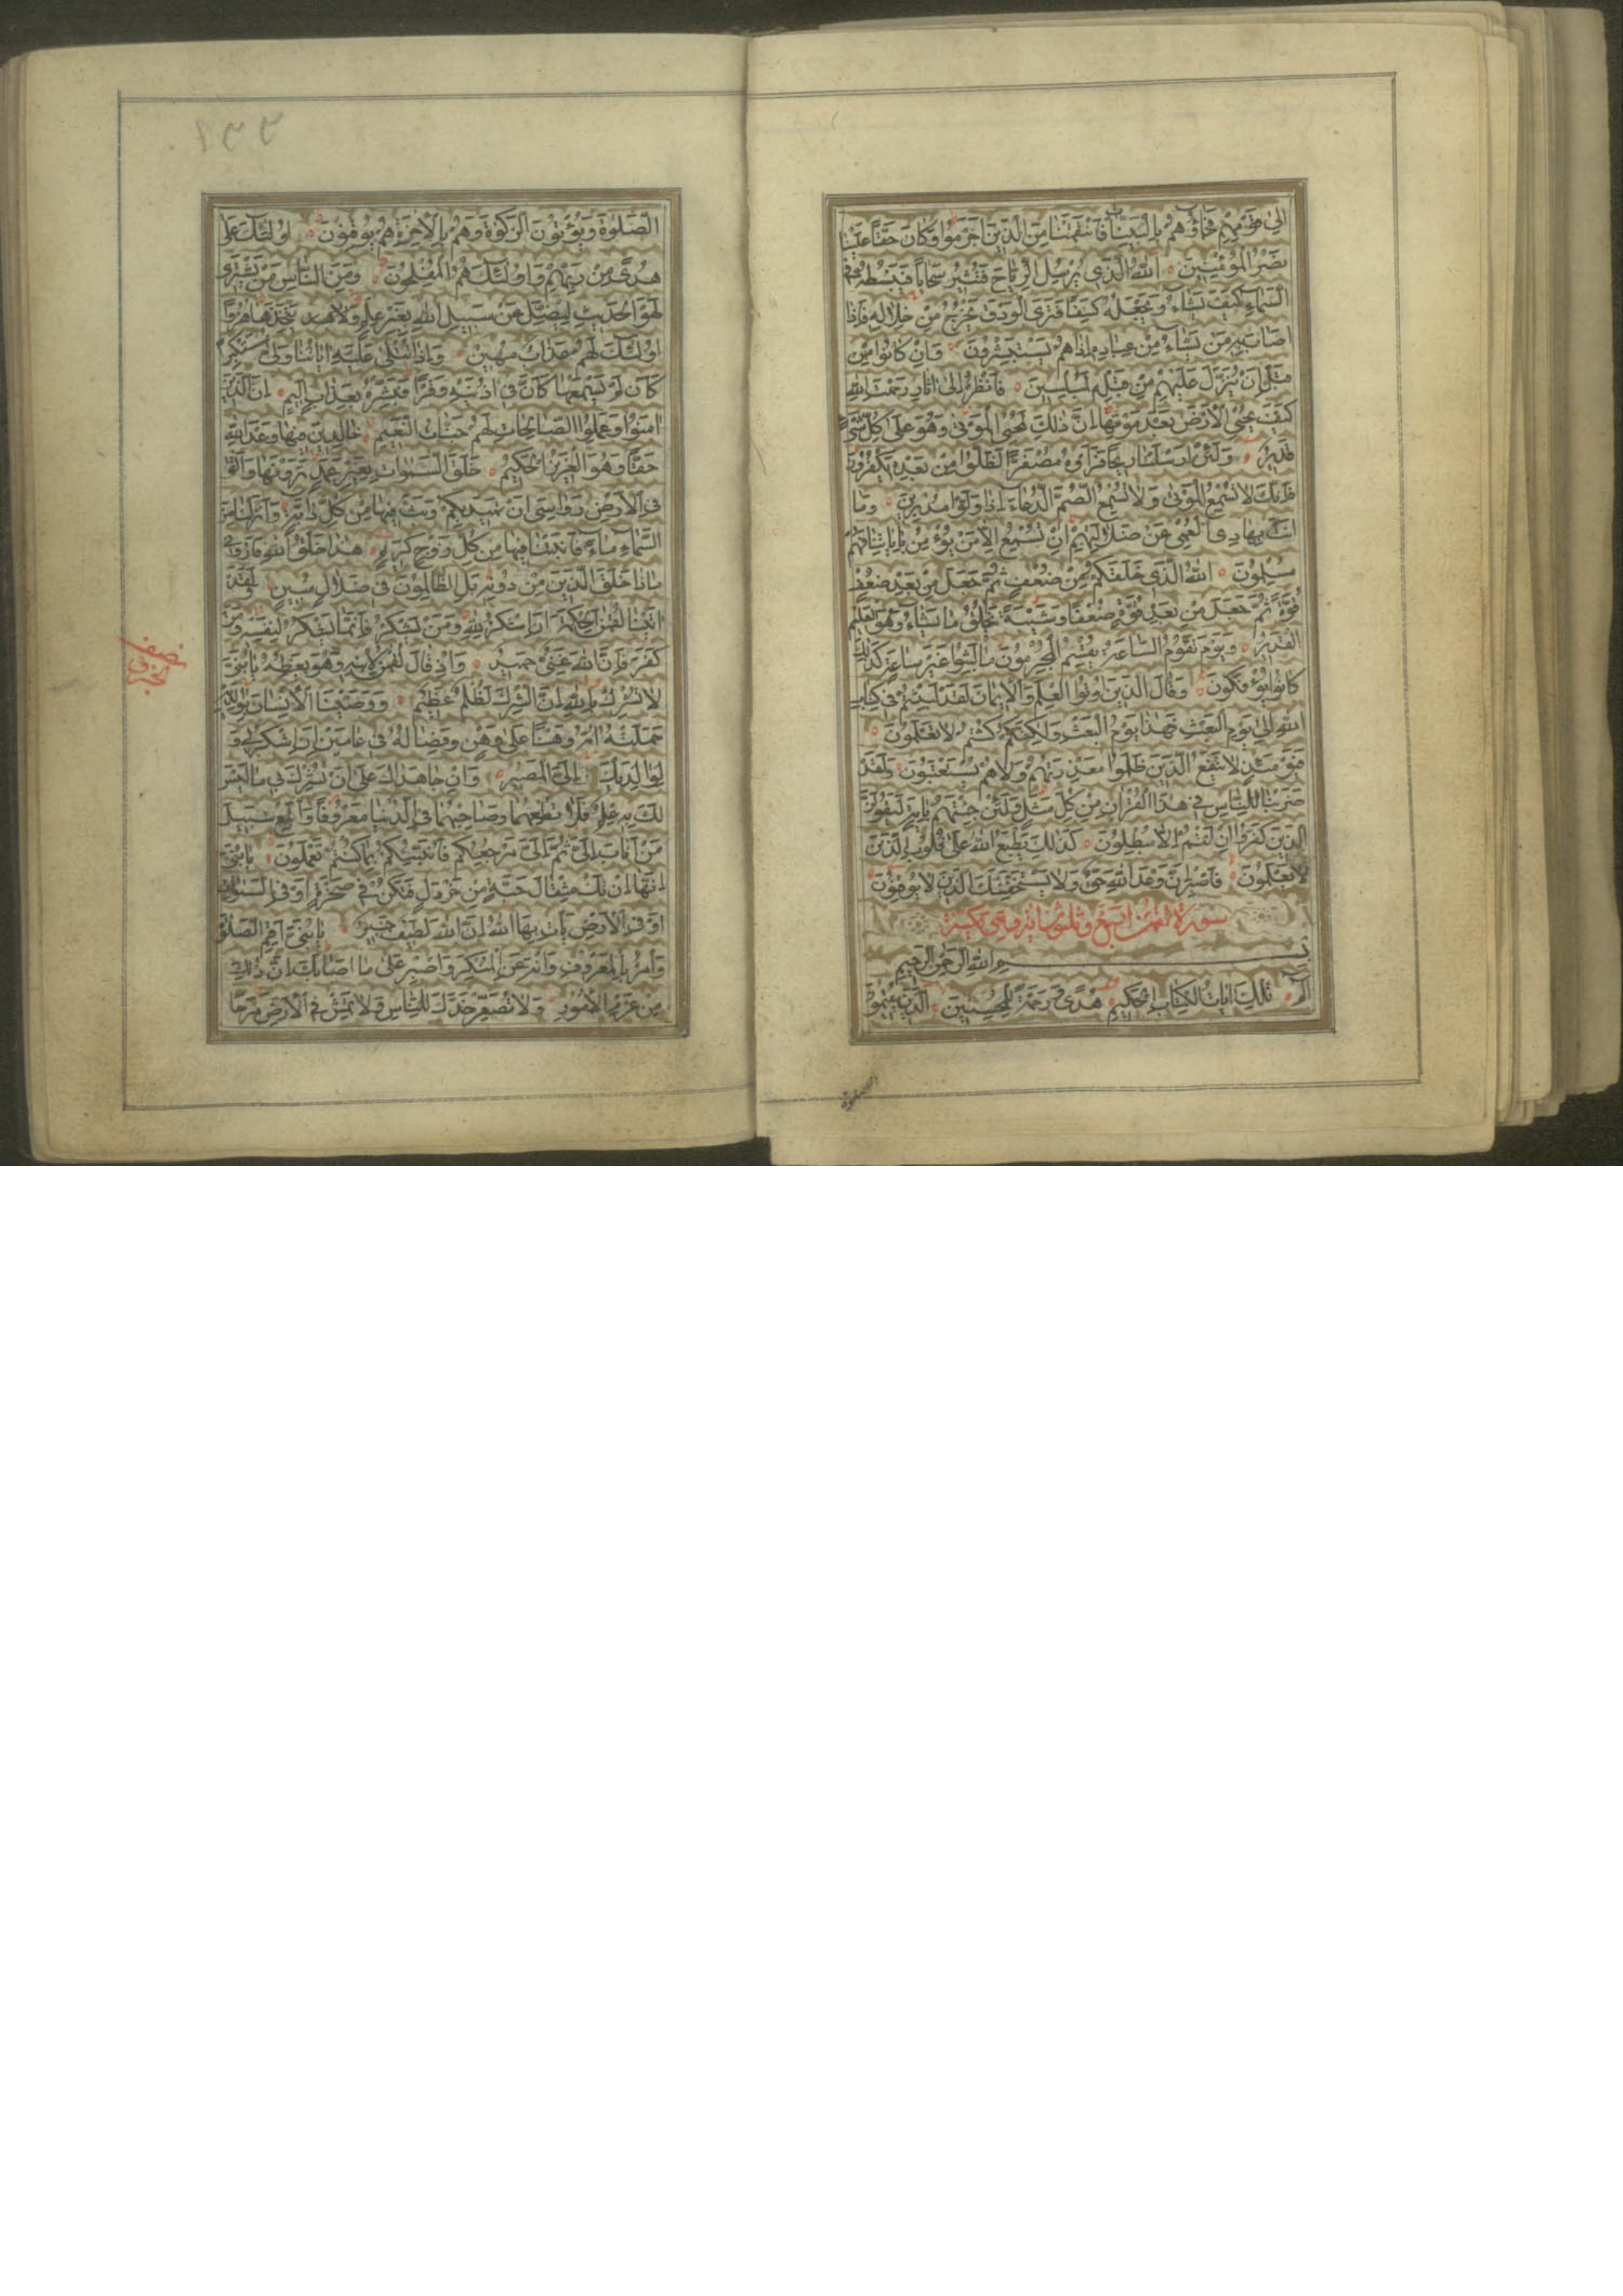 الى قومهم فجاؤهم بالبينات فانتقمنا من الذين اجرموا وكان حقا علينا
نصر المؤمنين الله الذى يرسل الرياح فتثير سحابا فيبسطه فى
السماء كيف يشاء ويجعله كسفا فترى الودق يخرج من خلاله فاذا
اصاب به من يشاء من عباده اذا هم يستبشرون وان كانوا من
قبل ان ينزل عليهم من قبله لمبلسين فانظر الى اثار رحمت الله
كيف يحيى الارض بعد موتها ان ذلك لمحيى الموتى وهو على كل شىء
قدير ولئن ارسلنا ريحا فراوه مصفرا لظلوا من بعده يكفرون
فانك لا تسمع الموتى ولا تسمع الصم الدعاء اذا ولوا مدبرين وما
انت بهاد العمى عن ضلالتهم ان تسمع الا من يؤمن باياتنا فهم
مسلمون الله الذى خلقكم من ضعف ثم جعل من بعد ضعف
قوة ثم جعل من بعد قوة ضعفا وشيبة يخلق ما يشاء وهو العليم
القدير ويوم تقوم الساعة يقسم المجرمون ما لبثوا غير ساعة كذلك
كانوا يؤفكون وقال الذين اوتوا العلم والايمان لقد لبثتم فى كتاب
الله الى يوم البعث فهذا يوم البعث ولكنكم كنتم لا تعلمون
فيومئذ لا تنفع الذين ظلموا معذرتهم ولا هم يستعتبون ولقد
ضربنا للناس فى هذا القران من كل مثل ولئن جئتهم باية ليقولن
الذين كفروا ان انتم الا مبطلون كذلك يطبع الله على قلوب الذين
لا يعلمون فاصبر ان وعد الله حق ولا يستخفنك الذين لا يوقنون
سورة لقمن اربع وثلثون اية وهى مكية
بسم الله الرحمن الرحيم
الم تلك ايات الكتاب الحكيم هدى ورحمة للمحسنين الذين يقيمون
١٣٣
الصلوة ويؤتون الزكوة وهم بالاخرة هم يوقنون اولئك على
هدى من ربهم واولئك هم المفلحون ومن الناس من يشترى
لهو الحديث ليضل عن سبيل الله بغير علم ويتخذها هزوا
اولئك لهم عذاب مهين واذا تتلى عليه اياتنا ولى مستكبرا
كان لم يسمعها كان فى اذنيه وقرا فبشره بعذاب اليم ان الذين
امنوا وعملوا الصالحات لهم جنات النعيم خالدين فيها وعد الله
حقا وهو العزيز الحكيم خلق السموات بغير عمد ترونها والقى
فى الارض رواسى ان تميد بكم وبث فيها من كل دابة وانزلنا من
السماء ماء فانبتنا فيها من كل زوج كريم هذا خلق الله فارونى
ماذا خلق الذين من دونه بل الظالمون فى ضلال مبين ولقد
اتينا لقمن الحكمة ان اشكر لله ومن يشكر فانما يشكر لنفسه ومن
كفر فان الله غنى حميد واذ قال لقمن لابنه وهو يعظه يا بنى
لا تشرك بالله ان الشرك لظلم عظيم ووصينا الانسان بوالديه
حملته امه وهنا على وهن وفصاله فى عامين ان اشكر لى و
لوالديك الى المصير وان جاهداك على ان تشرك بى ما ليس
لك به علم فلا تطعهما وصاحبهما فى الدنيا معروفا واتبع سبيل
من اناب الى ثم الى مرجعكم فانبئكم بما كنتم تعملون يا بنى
انها ان تك مثقال حبة من خردل فتكن فى صخرة او فى السموات
او فى الارض يات بها الله ان الله لطيف خبير يا بنى اقم الصلوة
وامر بالمعروف وانه عن المنكر واصبر على ما اصابك ان ذلك
من عزم الامور ولا تصعر خدك للناس ولا تمش فى الارض مرحا
نصف
الحزب
الصلوة